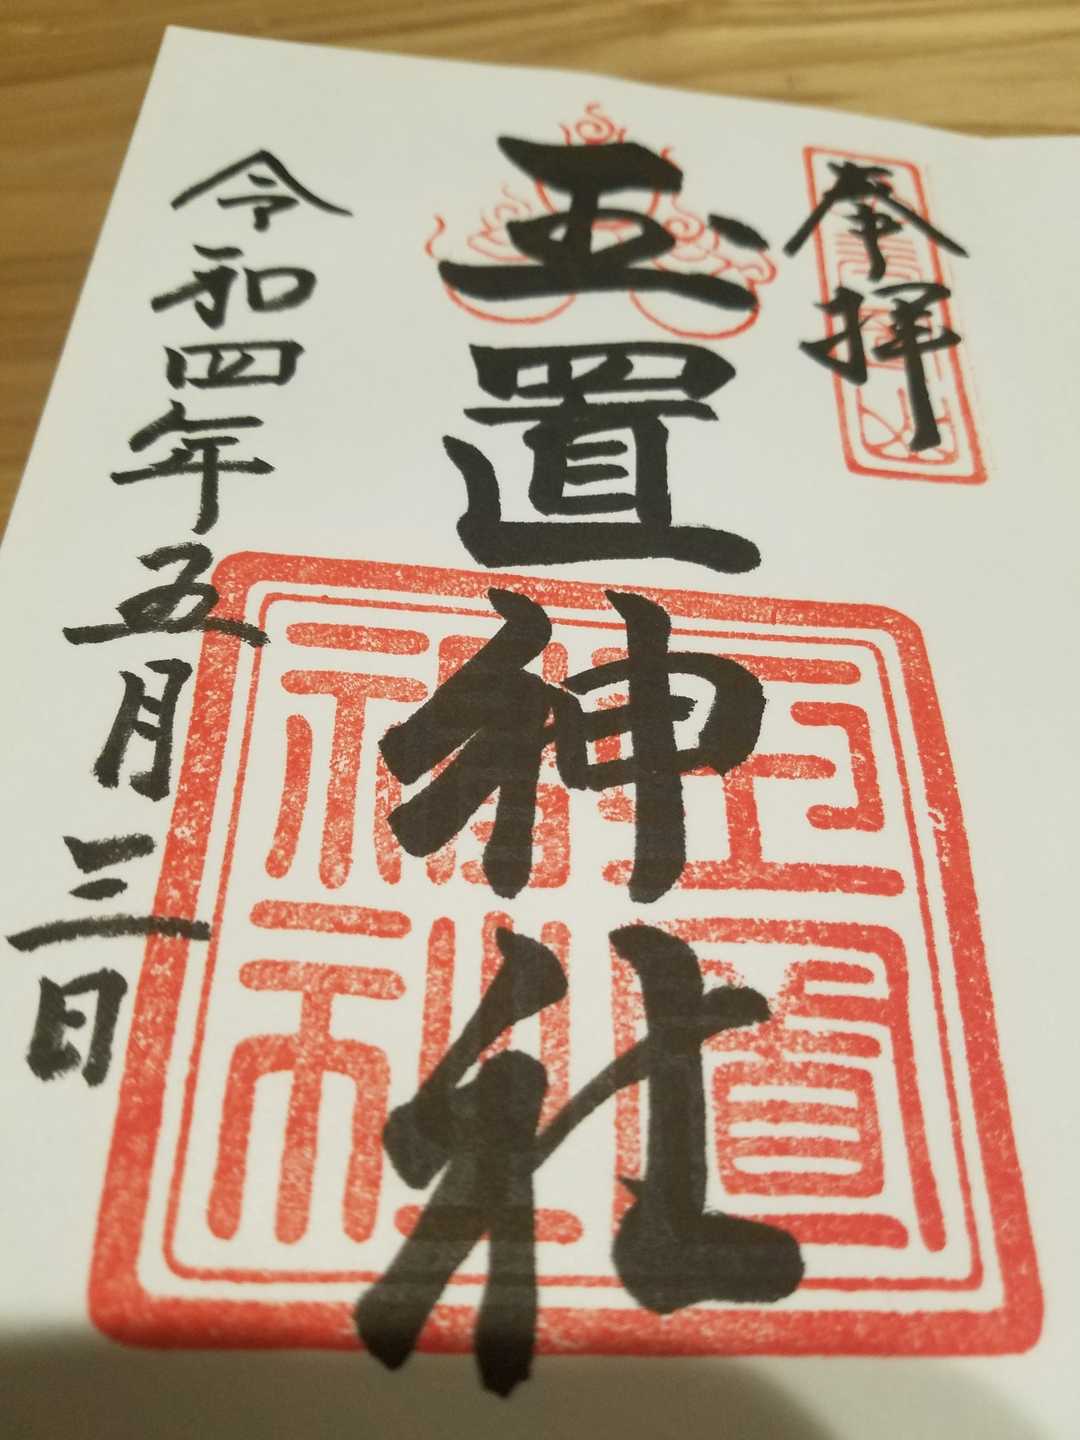 奉拝
玉置神社
令和四年五月三日
玉置神社